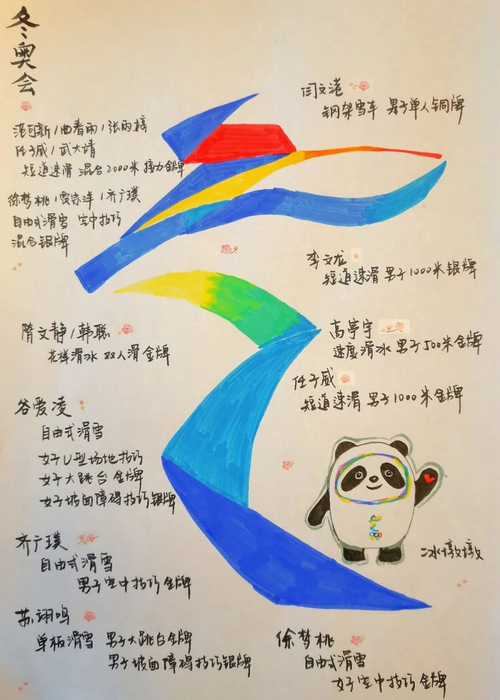 冬奥会
范可新/曲春雨/张雨婷
任子威/武大靖
短道速滑 混合2000米 接力金牌
徐梦桃/贾宗洋/齐广璞
自由式滑雪 空中技巧
混合银牌
闫文港
钢架雪车 男子单人铜牌
李文龙
短道速滑 男子1000米银牌
隋文静/韩聪
花样滑冰 双人滑金牌
高亭宇
速度滑冰 男子500米金牌
任子威
短道速滑 男子1000米金牌
谷爱凌
自由式滑雪
女子U型场地技巧
女子大跳台金牌
女子坡面障碍技巧银牌
齐广璞
自由式滑雪
男子空中技巧金牌
冰墩墩
苏翊鸣
单板滑雪 男子大跳台金牌
男子坡面障碍技巧银牌
徐梦桃
自由式滑雪
女子空中技巧金牌